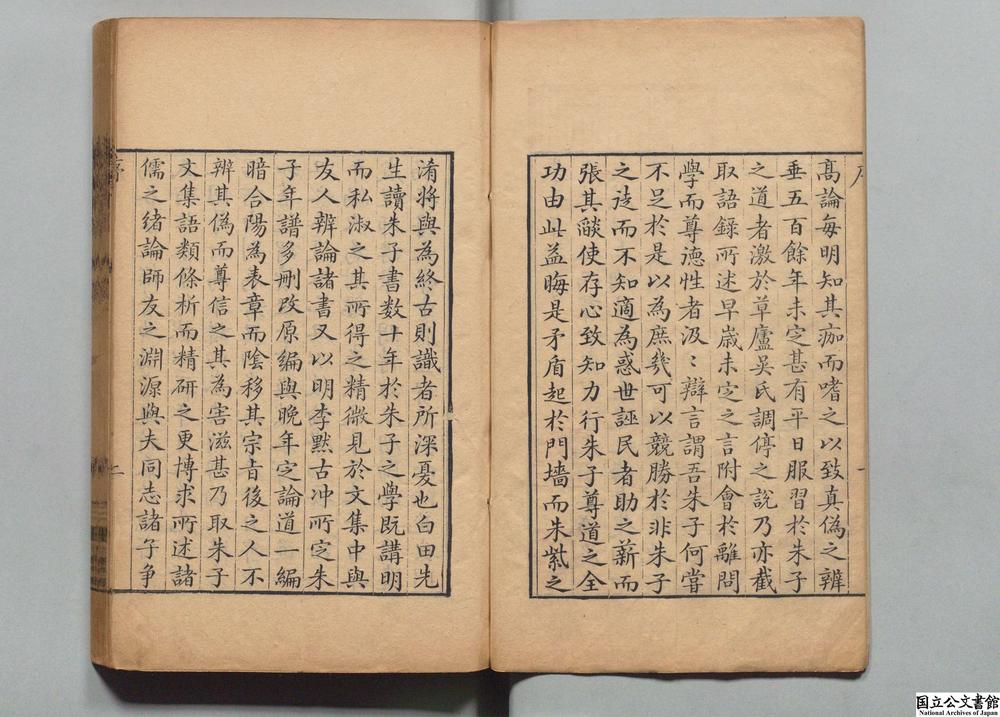 高論每明知其痂而嗜之以致真偽之辨
垂五百餘年未定甚有平日服習於朱子
之道者激於草廬吳氏調停之說乃亦截
取語錄所述早歲未定之言附會於離問
學而尊德性者汲〻辯言謂吾朱子何嘗
不足於是以為庶幾可以競勝於非朱子
之徒而不知適為惑世誣民者助之薪而
張其燄使存心致知力行朱子尊道之全
功由此益晦是矛盾起於門墻而朱紫之
淆將與為終古則識者所深憂也白田先
生讀朱子書數十年於朱子之學既講明
而私淑之其所得之精微見於文集中與
友人辨論諸書又以明李默古冲所定朱
子年譜多刪改原編與晚年定論道一編
暗合陽為表章而陰移其宗旨後之人不
辨其偽而尊信之其為害滋甚乃取朱子
文集語類條析而精研之更博求所述諸
儒之緒論師友之淵源與夫同志諸子爭
序
国立公文書館
National Archives of Japan